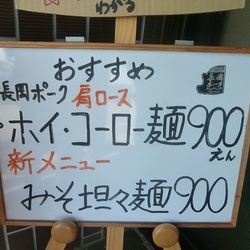 わかる
おすすめ
長岡ポーク 肩ロース
ホイ・コーロー麺 900
えん
新メニュー
みそ坦々麺 900